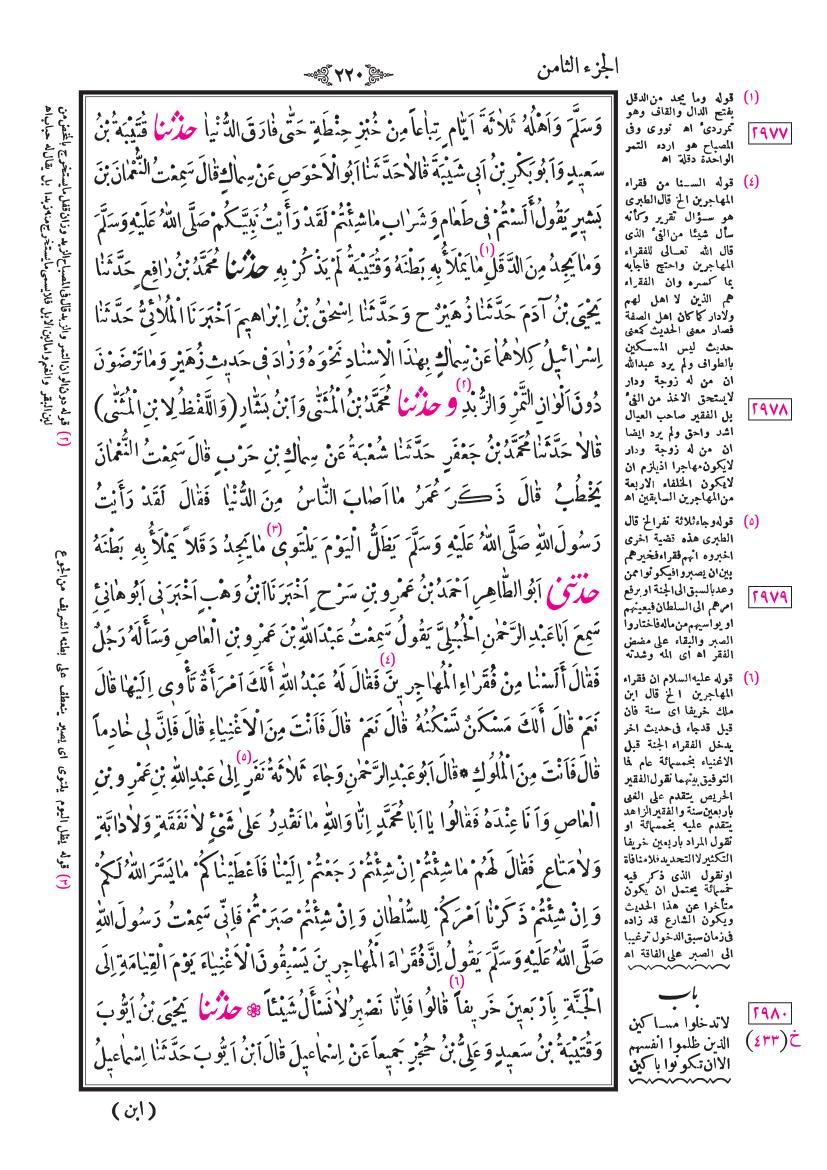 الجزء الثامن
٢٢٠
وَسَلَّمَ وَاَهْلُهُ ثَلَاثَةَ اَيَّامٍ تِبَاعاً مِنْ خُبْزِ حِنْطَةٍ حَتّٰى فَارَقَ الدُّنْيَا حدثنا قُتَيْبَةُ بْنُ
سَعِيدٍ وَاَبُو بَكْرِ بْنُ اَبِي شَيْبَةَ قَالَا حَدَّثَنَا اَبُو الْاَحْوَصِ عَنْ سِمَاكٍ قَالَ سَمِعْتُ النُّعْمَانَ بْنَ
بَشِيرٍ يَقُولُ اَلَسْتُمْ فِي طَعَامٍ وَشَرَابٍ مَا شِئْتُمْ لَقَدْ رَأَيْتُ نَبِيَّكُمْ صَلَّى اللهُ عَلَيْهِ وَسَلَّمَ
وَمَا يَجِدُ مِنَ الدَّقَلِ (١) مَا يَمْلَأُ بِهِ بَطْنَهُ وَقُتَيْبَةُ لَمْ يَذْكُرْ بِهِ حدثنا مُحَمَّدُ بْنُ رَافِعٍ حَدَّثَنَا
يَحْيَى بْنُ آدَمَ حَدَّثَنَا زُهَيْرٌ ح وَحَدَّثَنَا اِسْحٰقُ بْنُ اِبْرَاهِيمَ اَخْبَرَنَا الْمُلَائِيُّ حَدَّثَنَا
اِسْرَائِيلُ كِلَاهُمَا عَنْ سِمَاكٍ بِهٰذَا الْاِسْنَادِ نَحْوَهُ وَزَادَ فِي حَدِيثِ زُهَيْرٍ وَمَا تَرْضَوْنَ
دُونَ اَلْوَانِ التَّمْرِ وَالزُّبْدِ (٢) و حدثنا مُحَمَّدُ بْنُ الْمُثَنّٰى وَابْنُ بَشَّارٍ (وَاللَّفْظُ لِابْنِ الْمُثَنّٰى)
قَالَا حَدَّثَنَا مُحَمَّدُ بْنُ جَعْفَرٍ حَدَّثَنَا شُعْبَةُ عَنْ سِمَاكِ بْنِ حَرْبٍ قَالَ سَمِعْتُ النُّعْمَانَ
يَخْطُبُ قَالَ ذَكَرَ عُمَرُ مَا اَصَابَ النَّاسُ مِنَ الدُّنْيَا فَقَالَ لَقَدْ رَأَيْتُ
رَسُولَ اللهِ صَلَّى اللهُ عَلَيْهِ وَسَلَّمَ يَظَلُّ الْيَوْمَ يَلْتَوِي (٣) مَا يَجِدُ دَقَلاً يَمْلَأُ بِهِ بَطْنَهُ
حدثني اَبُو الطَّاهِرِ اَحْمَدُ بْنُ عَمْرِو بْنِ سَرْحٍ اَخْبَرَنَا ابْنُ وَهْبٍ اَخْبَرَنِي اَبُو هَانِئٍ
سَمِعَ اَبَا عَبْدِ الرَّحْمٰنِ الْحُبُلِيَّ يَقُولُ سَمِعْتُ عَبْدَ اللهِ بْنَ عَمْرِو بْنِ الْعَاصِ وَسَأَلَهُ رَجُلٌ
فَقَالَ أَلَسْنَا مِنْ فُقَرَاءِ الْمُهَاجِرِينَ (٤) فَقَالَ لَهُ عَبْدُ اللهِ أَلَكَ امْرَأَةٌ تَأْوِي اِلَيْهَا قَالَ
نَعَمْ قَالَ أَلَكَ مَسْكَنٌ تَسْكُنُهُ قَالَ نَعَمْ قَالَ فَاَنْتَ مِنَ الْاَغْنِيَاءِ قَالَ فَاِنَّ لِي خَادِماً
قَالَ فَاَنْتَ مِنَ الْمُلُوكِ * قَالَ اَبُو عَبْدِ الرَّحْمٰنِ وَجَاءَ ثَلَاثَةُ نَفَرٍ (٥) اِلَى عَبْدِ اللهِ بْنِ عَمْرِو بْنِ
الْعَاصِ وَاَنَا عِنْدَهُ فَقَالُوا يَا اَبَا مُحَمَّدٍ اِنَّا وَاللهِ مَا نَقْدِرُ عَلَى شَيْءٍ لَا نَفَقَةٍ وَلَا دَابَّةٍ
وَلَا مَتَاعٍ فَقَالَ لَهُمْ مَا شِئْتُمْ اِنْ شِئْتُمْ رَجَعْتُمْ اِلَيْنَا فَاَعْطَيْنَاكُمْ مَا يَسَّرَ اللهُ لَكُمْ
وَاِنْ شِئْتُمْ ذَكَرْنَا اَمْرَكُمْ لِلسُّلْطَانِ وَاِنْ شِئْتُمْ صَبَرْتُمْ فَاِنِّي سَمِعْتُ رَسُولَ اللهِ
صَلَّى اللهُ عَلَيْهِ وَسَلَّمَ يَقُولُ اِنَّ فُقَرَاءَ الْمُهَاجِرِينَ يَسْبِقُونَ الْاَغْنِيَاءَ يَوْمَ الْقِيَامَةِ اِلَى
الْجَنَّةِ بِاَرْبَعِينَ خَرِيفاً (٦) قَالُوا فَاِنَّا نَصْبِرُ لَا نَسْأَلُ شَيْئاً * حدثنا يَحْيَى بْنُ اَيُّوبَ
وَقُتَيْبَةُ بْنُ سَعِيدٍ وَعَلِيُّ بْنُ حُجْرٍ جَمِيعاً عَنْ اِسْمَاعِيلَ قَالَ ابْنُ اَيُّوبَ حَدَّثَنَا اِسْمَاعِيلُ
( ابن )
(١) قوله وما يجد من الدقل
بفتح الدال والقاف وهو
تمر ردئ اه نووى وفى
المصباح هو اردء التمر
الواحدة دقلة اه
(٤) قوله السنا من فقراء
المهاجرين الخ قال الطبرى
هو سؤال تقرير وكأنه
سأل شيئا من الفئ الذى
قال الله تعالى للفقراء
المهاجرين واحتج فاجابه
بما كسره وان الفقراء
هم الذين لا اهل لهم
ولا دار كما كان اهل الصفة
فصار معنى الحديث كمعنى
حديث ليس المسكين
بالطواف ولم يرد عبدالله
ان من له زوجة ودار
لا يستحق الاخذ من الفئ
بل الفقير صاحب العيال
اشد واحق ولم يرد ايضا
ان من له زوجة ودار
لا يكون مهاجرا اذ يلزم ان
لا يكون الخلفاء الاربعة
من المهاجرين السابقين اه
(٥) قوله وجاء ثلاثة نفر الخ قال
الطبرى هذه قضية اخرى
اخبروه انهم فقراء فخيرهم
بين ان يصبروا فيكونوا ممن
وعد بالسبق الى الجنة او برفع
امرهم الى السلطان فيعينهم
او يواسيهم من ماله فاختاروا
الصبر والبقاء على مضض
الفقر اه اى المه وشدته
(٦) قوله عليه السلام ان فقراء
المهاجرين الخ قال ابن
ملك خريفا اى سنة فان
قيل قد جاء فى حديث اخر
يدخل الفقراء الجنة قبل
الاغنياء بخمسمائة عام فما
التوفيق بينهما نقول الفقير
الحريص يتقدم على الغنى
باربعين سنة والفقير الزاهد
يتقدم عليه بخمسمائة او
نقول المراد باربعين خريفا
التكثير لا التحديد فلا منافاة
او نقول الذى ذكر فيه
خمسمائة يحتمل ان يكون
متأخرا عن هذا الحديث
ويكون الشارع قد زاده
فى زمان سبق الدخول ترغيبا
الى الصبر على الفاقة اه
باب
لا تدخلوا مساكين
الذين ظلموا انفسهم
الا ان تكونوا باكين
٢٩٧٧
٢٩٧٨
٢٩٧٩
٢٩٨٠
خ (٤٣٣)
(٢) قوله دون الوان التمر والزبد قال فى المصباح الزبد وزان قفل ما يستخرج بالمخض من
لبن البقر والغنم واما لبن الابل فلا يسمى ما يستخرج منه زبدا بل يقال له جباب اه
(٣) قوله يظل اليوم يلتوى اى يصير ينعطف على بطنه الشريف من الجوع